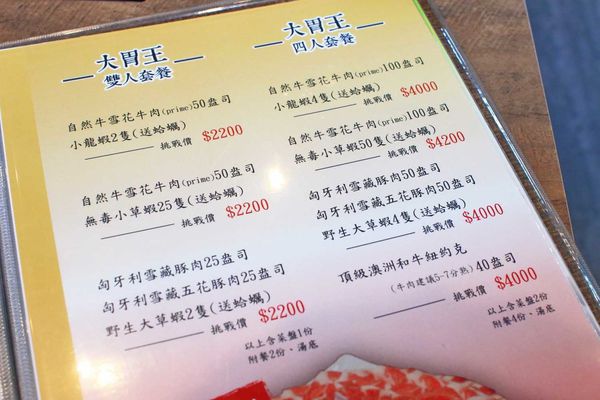 大胃王
雙人套餐
自然牛雪花牛肉(prime)50盎司
小龍蝦2隻(送蛤蠣)
挑戰價 $2200
自然牛雪花牛肉(prime)50盎司
無毒小草蝦25隻(送蛤蠣)
挑戰價 $2200
匈牙利雪藏豚肉25盎司
匈牙利雪藏五花豚肉25盎司
野生大草蝦2隻(送蛤蠣)
挑戰價 $2200
以上含菜盤1份
附餐2份、湯底
大胃王
四人套餐
自然牛雪花牛肉(prime)100盎司
小龍蝦4隻(送蛤蠣)
挑戰價 $4000
自然牛雪花牛肉(prime)100盎司
無毒小草蝦50隻(送蛤蠣)
挑戰價 $4200
匈牙利雪藏豚肉50盎司
匈牙利雪藏五花豚肉50盎司
野生大草蝦4隻(送蛤蠣)
挑戰價 $4000
頂級澳洲和牛紐約克40盎司
(牛肉建議5-7分熟)
挑戰價 $4000
以上含菜盤2份
附餐4份、湯底